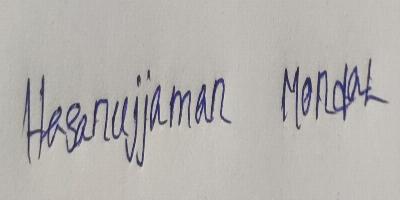 Hasanujjaman Mondal